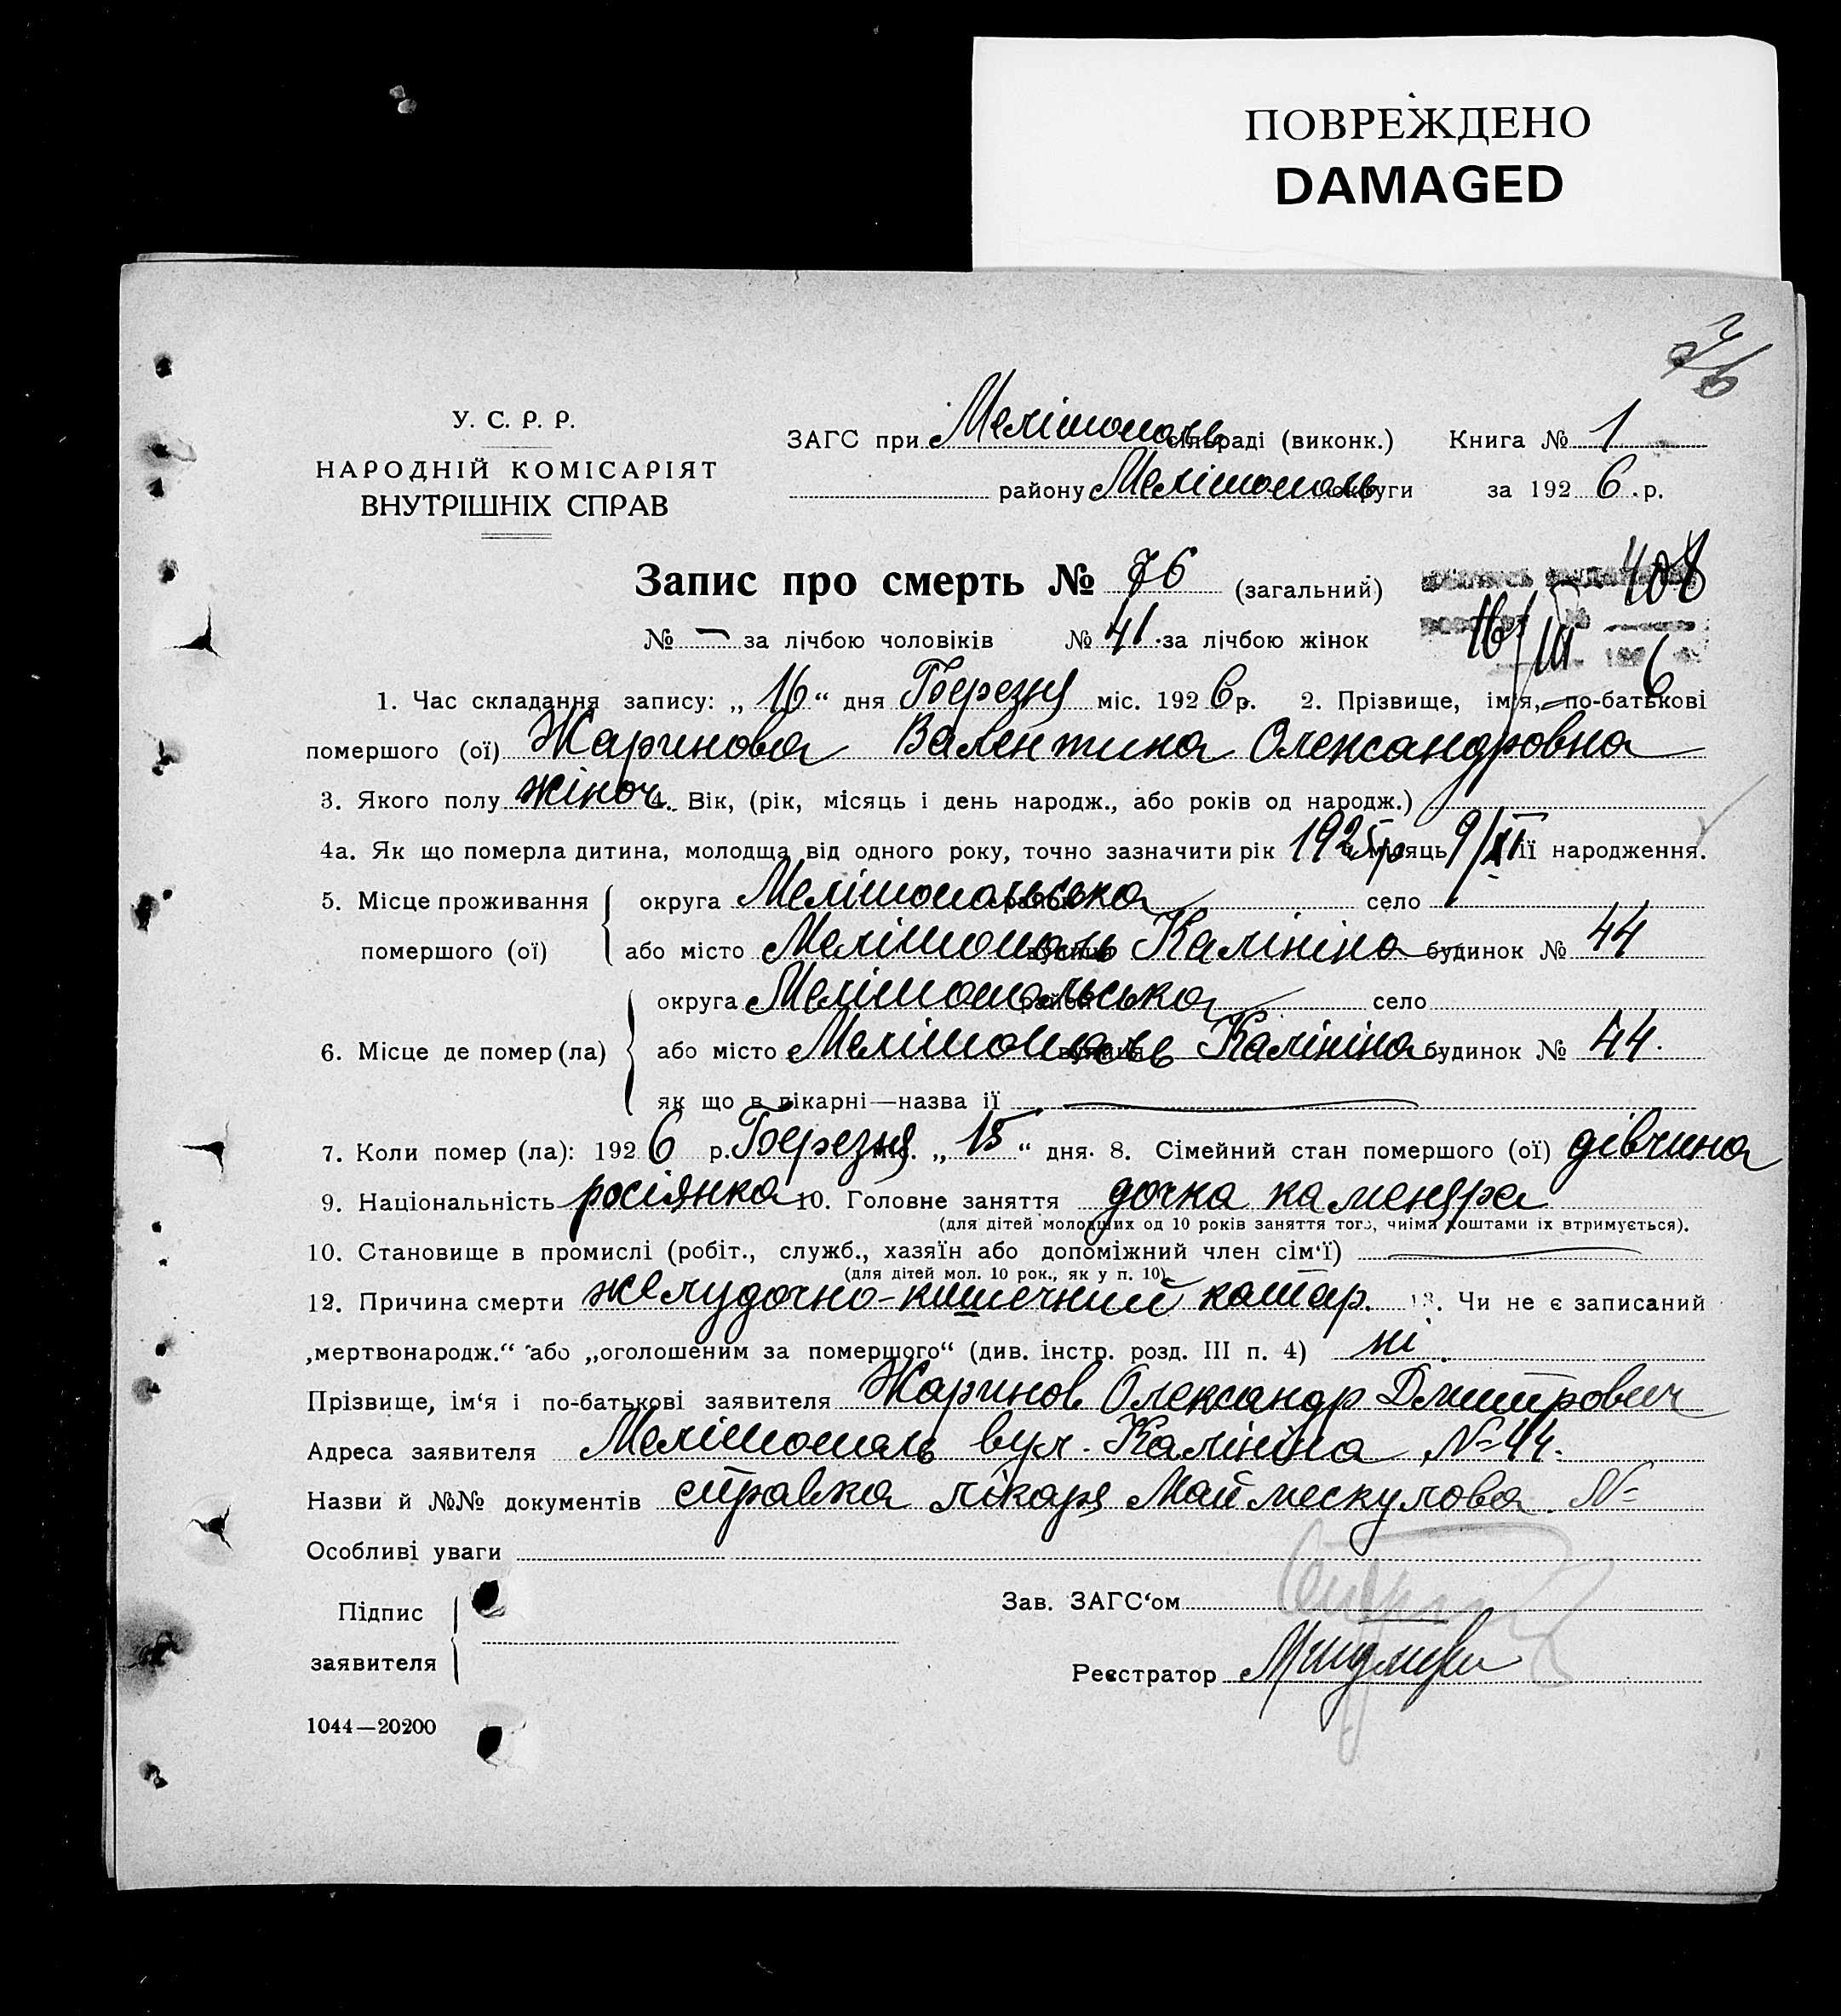 ПОВРЕЖДЕНО
DAMAGED
76
У. С. Р. Р.
НАРОДНІЙ КОМІСАРІЯТ
ВНУТРІШНІХ СПРАВ
ЗАГС при Мелітополь сільраді (виконк.) Книга № 1
району Мелітополь округи за 1926 р.
Запис про смерть № 76 (загальний)
408
№ — за лічбою чоловіків № 41 за лічбою жінок
16/III 6
1. Час складання запису: „16“ дня Березня міс. 1926 р. 2. Прізвище, ім'я, по-батькові
помершого (ої) Жаринова Валентина Олександровна
3. Якого полу жіноч. 4. Вік, (рік, місяць і день народж., або років од народж.)
4а. Як що померла дитина, молодща від одного року, точно зазначити рік 1925 р місяць 9/XI її народження.
5. Місце проживання помершого (ої) округа Мелітопольська район село
або місто Мелітополь вулиця Калініна будинок № 44
6. Місце де помер (ла) округа Мелітопольська район село
або місто Мелітополь вулиця Калініна будинок № 44.
як що в лікарні—назва її —
7. Коли помер (ла): 1926 р. Березня міс. „15“ дня. 8. Сімейний стан помершого (ої) дівчина
9. Національність росіянка 10. Головне заняття дочка каменяра
(для дітей молодших од 10 років заняття того, чиїми коштами їх втримується).
10. Становище в промислі (робіт., служб., хазяїн або допоміжний член сім'ї) —
(для дітей мол. 10 рок., як у п. 10)
12. Причина смерти желудочно-кишечний катар. 13. Чи не є записаний
„мертвонародж.“ або „оголошеним за помершого“ (див. інстр. розд. III п. 4) ні.
Прізвище, ім'я і по-батькові заявителя Жаринов Олександр Дмитрович
Адреса заявителя Мелітополь вул. Калініна № 44.
Назви й №№ документів справка лікаря Маймескулова №
Особливі уваги
Підпис
заявителя
Зав. ЗАГС'ом
Реєстратор
1044—20200